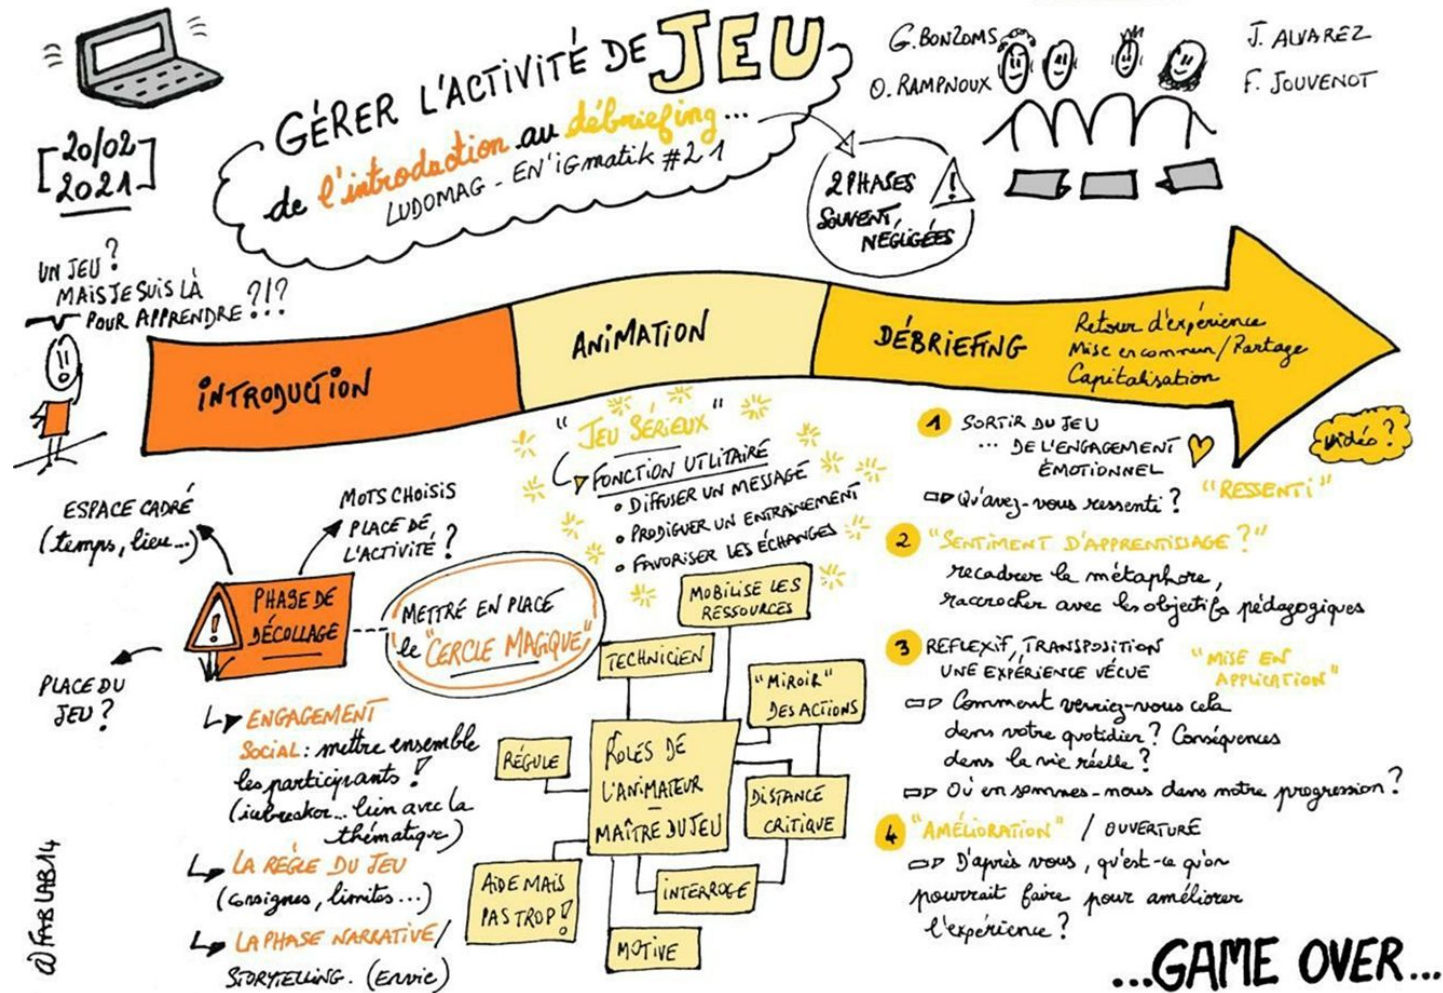 20/02
2021
GÉRER L'ACTIVITÉ DE JEU
de l'introduction au débriefing...
LUDOMAG - EN'IGmatik #21
G. BONZOMS
O. RAMPNOUX
J. ALVAREZ
F. JOUVENOT
2 PHASES
SOUVENT
NÉGLIGÉES
!
UN JEU?
MAIS JE SUIS LÀ
POUR APPRENDRE?!?
INTRODUCTION
ANIMATION
DÉBRIEFING
Retour d'expérience
Mise en commun/Partage
Capitalisation
ESPACE CADRÉ
(temps, lieu...)
MOTS CHOISIS
PLACE DE
L'ACTIVITÉ?
!
PHASE DE
DÉCOLLAGE
PLACE DU
JEU?
METTRE EN PLACE
le "CERCLE MAGIQUE"
ENGAGEMENT
SOCIAL: mettre ensemble
les participants!
(icebreaker... lien avec la
thématique)
LA RÈGLE DU JEU
(consignes, limites...)
LA PHASE NARRATIVE/
STORYTELLING. (Envie)
"JEU SÉRIEUX"
FONCTION UTILITAIRE
• DIFFUSER UN MESSAGE
• PRODIGUER UN ENTRAINEMENT
• FAVORISER LES ÉCHANGES
MOBILISE LES
RESSOURCES
TECHNICIEN
"MIROIR"
DES ACTIONS
RÉGULE
RÔLES DE
L'ANIMATEUR
—
MAÎTRE DU JEU
DISTANCE
CRITIQUE
AIDE MAIS
PAS TROP!
INTERROGE
MOTIVE
vidéo?
1 SORTIR DU JEU
... DE L'ENGAGEMENT
ÉMOTIONNEL
Qu'avez-vous ressenti? "RESSENTI"
2 "SENTIMENT D'APPRENTISSAGE?"
recadrer la métaphore,
raccrocher avec les objectifs pédagogiques
3 REFLEXIF, TRANSPOSITION
UNE EXPÉRIENCE VÉCUE
"MISE EN
APPLICATION"
Comment verriez-vous cela
dans votre quotidien? Conséquences
dans la vie réelle?
Où en sommes-nous dans notre progression?
4 "AMÉLIORATION" / OUVERTURE
D'après vous, qu'est-ce qu'on
pourrait faire pour améliorer
l'expérience?
@FABLAB14
...GAME OVER...